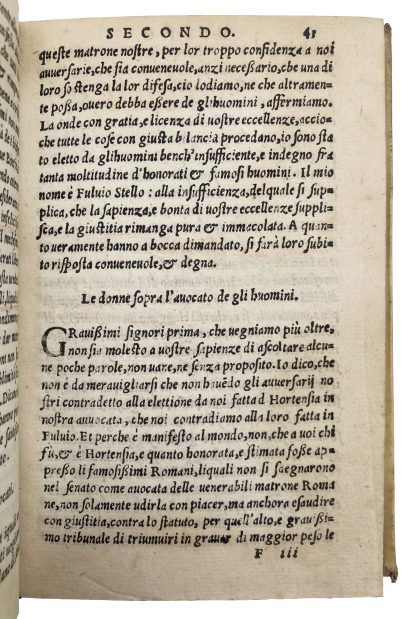 SECONDO. 43
queste matrone nostre, per lor troppo confidenza a noi
avversarie, che sia conuenevole, anzi necessario, che una di
loro sostenga la lor difesa, cio lodiamo, ne che altramen-
te possa, ouero debba essere de glihuomini, affermiamo.
La onde con gratia, e licenza di uostre eccellenze, accio-
che tutte le cose con giusta bilancia procedano, io sono sta
to eletto da glihuomini bench'insufficiente, e indegno fra
tanta moltitudine d'honorati & famosi huomini. Il mio
nome è Fuluio Stello: alla insufficienza, delquale si sup-
plica, che la sapienza, e bonta di uostre eccellenze suppli-
sca, e la giustitia rimanga pura & immacolata. A quan-
to ueramente hanno a bocca dimandato, si farà loro subi-
to risposta conueneuole, & degna.
Le donne sopra l'auocato de gli huomini.
GRauißimi signori prima, che uegniamo più oltre,
non sia molesto a uostre sapienze di ascoltare alcu-
ne poche parole, non uane, ne senza proposito. Io dico, che
non è da merauigliarsi che non hauēdo gli auuersarij no
stri contradetto alla elettione da noi fatta d'Hortensia in
nostra auuocata, che noi contradiamo alla loro fatta in
Fuluio. Et perche è manifesto al mondo, non, che a uoi chi
fù, & è Hortensia, e quanto honorata, e stimata fosse ap-
presso li famosißimi Romani, liquali non si sdegnarono
nel senato come auocata delle uenerabili matrone Roma
ne, non solamente udirla con piacer, ma anchora esaudire
con giustitia, contra lo statuto, per quell'alto, e grauißi-
mo tribunale di triumuiri in grauar di maggior peso le
F iii